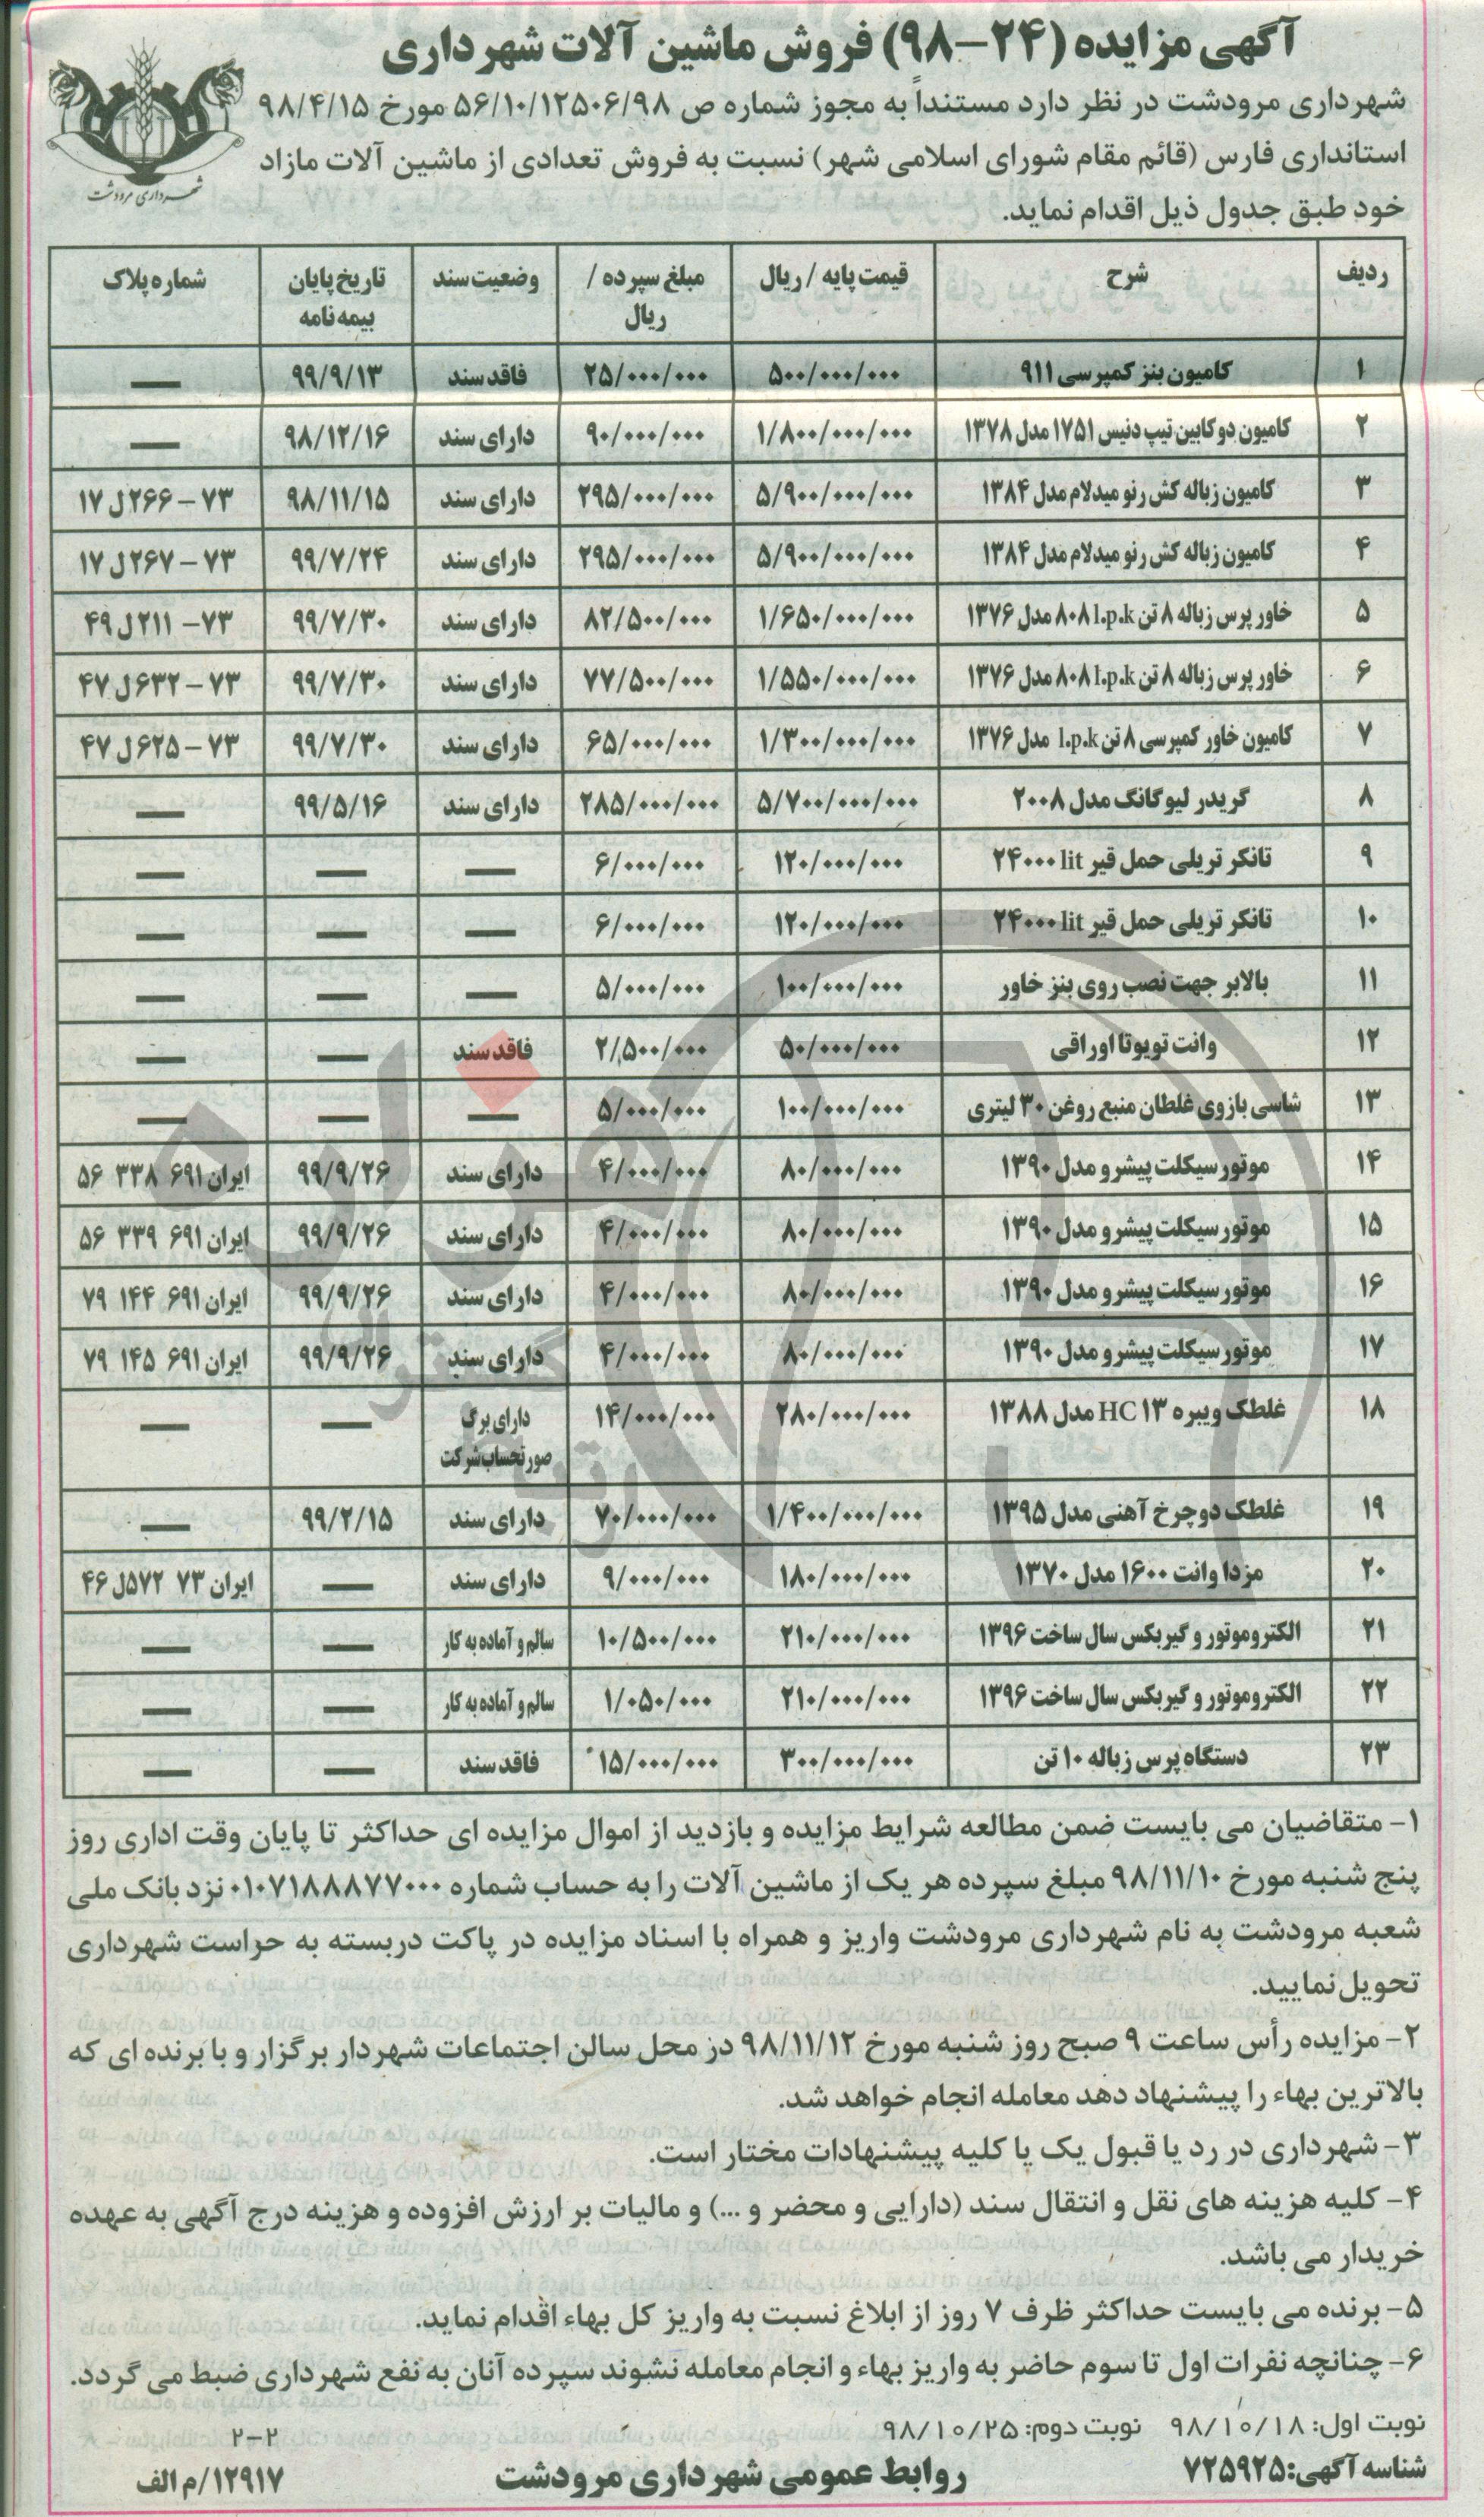 آگهی مزایده (۲۴-۹۸) فروش ماشین آلات شهرداری
شهرداری مرودشت
شهرداری مرودشت در نظر دارد مستنداً به مجوز شماره ص ۵۶/۱۰/۱۲۵۰۶/۹۸ مورخ ۹۸/۴/۱۵
استانداری فارس (قائم مقام شورای اسلامی شهر) نسبت به فروش تعدادی از ماشین آلات مازاد
خود طبق جدول ذیل اقدام نماید.
ردیف شرح قیمت پایه / ریال مبلغ سپرده / ریال وضعیت سند تاریخ پایان بیمه نامه شماره پلاک
۱ کامیون بنز کمپرسی ۹۱۱ ۵۰۰/۰۰۰/۰۰۰ ۲۵/۰۰۰/۰۰۰ فاقد سند ۹۹/۹/۱۳ —
۲ کامیون دو کابین تیپ دنیس ۱۷۵۱ مدل ۱۳۷۸ ۱/۸۰۰/۰۰۰/۰۰۰ ۹۰/۰۰۰/۰۰۰ دارای سند ۹۸/۱۲/۱۶ —
۳ کامیون زباله کش رنو میدلام مدل ۱۳۸۴ ۵/۹۰۰/۰۰۰/۰۰۰ ۲۹۵/۰۰۰/۰۰۰ دارای سند ۹۸/۱۱/۱۵ ۷۳ – ۲۶۶ل ۱۷
۴ کامیون زباله کش رنو میدلام مدل ۱۳۸۴ ۵/۹۰۰/۰۰۰/۰۰۰ ۲۹۵/۰۰۰/۰۰۰ دارای سند ۹۹/۷/۲۴ ۷۳ – ۲۶۷ل ۱۷
۵ خاور پرس زباله ۸ تن l.p.k ۸۰۸ مدل ۱۳۷۶ ۱/۶۵۰/۰۰۰/۰۰۰ ۸۲/۵۰۰/۰۰۰ دارای سند ۹۹/۷/۳۰ ۷۳– ۲۱۱ل ۴۹
۶ خاور پرس زباله ۸ تن l.p.k ۸۰۸ مدل ۱۳۷۶ ۱/۵۵۰/۰۰۰/۰۰۰ ۷۷/۵۰۰/۰۰۰ دارای سند ۹۹/۷/۳۰ ۷۳ – ۶۳۲ل ۴۷
۷ کامیون خاور کمپرسی ۸ تن l.p.k مدل ۱۳۷۶ ۱/۳۰۰/۰۰۰/۰۰۰ ۶۵/۰۰۰/۰۰۰ دارای سند ۹۹/۷/۳۰ ۷۳ – ۶۲۵ل ۴۷
۸ گریدر لیوگانگ مدل ۲۰۰۸ ۵/۷۰۰/۰۰۰/۰۰۰ ۲۸۵/۰۰۰/۰۰۰ دارای سند ۹۹/۵/۱۶ —
۹ تانکر تریلی حمل قیر ۲۴۰۰۰ lit ۱۲۰/۰۰۰/۰۰۰ ۶/۰۰۰/۰۰۰ — — —
۱۰ تانکر تریلی حمل قیر ۲۴۰۰۰ lit ۱۲۰/۰۰۰/۰۰۰ ۶/۰۰۰/۰۰۰ — — —
۱۱ بالابر جهت نصب روی بنز خاور ۱۰۰/۰۰۰/۰۰۰ ۵/۰۰۰/۰۰۰ — — —
۱۲ وانت تویوتا اوراقی ۵۰/۰۰۰/۰۰۰ ۲/۵۰۰/۰۰۰ فاقد سند — —
۱۳ شاسی بازوی غلطان منبع روغن ۳۰ لیتری ۱۰۰/۰۰۰/۰۰۰ ۵/۰۰۰/۰۰۰ — — —
۱۴ موتور سیکلت پیشرو مدل ۱۳۹۰ ۸۰/۰۰۰/۰۰۰ ۴/۰۰۰/۰۰۰ دارای سند ۹۹/۹/۲۶ ایران ۶۹۱ ۳۳۸ ۵۶
۱۵ موتور سیکلت پیشرو مدل ۱۳۹۰ ۸۰/۰۰۰/۰۰۰ ۴/۰۰۰/۰۰۰ دارای سند ۹۹/۹/۲۶ ایران ۶۹۱ ۳۳۹ ۵۶
۱۶ موتور سیکلت پیشرو مدل ۱۳۹۰ ۸۰/۰۰۰/۰۰۰ ۴/۰۰۰/۰۰۰ دارای سند ۹۹/۹/۲۶ ایران ۶۹۱ ۱۴۴ ۷۹
۱۷ موتور سیکلت پیشرو مدل ۱۳۹۰ ۸۰/۰۰۰/۰۰۰ ۴/۰۰۰/۰۰۰ دارای سند ۹۹/۹/۲۶ ایران ۶۹۱ ۱۴۵ ۷۹
۱۸ غلطک ویبره ۱۳ HC مدل ۱۳۸۸ ۲۸۰/۰۰۰/۰۰۰ ۱۴/۰۰۰/۰۰۰ دارای برگ صورتحساب شرکت — —
۱۹ غلطک دو چرخ آهنی مدل ۱۳۹۵ ۱/۴۰۰/۰۰۰/۰۰۰ ۷۰/۰۰۰/۰۰۰ دارای سند ۹۹/۲/۱۵ —
۲۰ مزدا وانت ۱۶۰۰ مدل ۱۳۷۰ ۱۸۰/۰۰۰/۰۰۰ ۹/۰۰۰/۰۰۰ دارای سند — ایران ۷۳ ۵۷۲ل ۴۶
۲۱ الکتروموتور و گیربکس سال ساخت ۱۳۹۶ ۲۱۰/۰۰۰/۰۰۰ ۱۰/۵۰۰/۰۰۰ سالم و آماده به کار — —
۲۲ الکتروموتور و گیربکس سال ساخت ۱۳۹۶ ۲۱۰/۰۰۰/۰۰۰ ۱/۰۵۰/۰۰۰ سالم و آماده به کار — —
۲۳ دستگاه پرس زباله ۱۰ تن ۳۰۰/۰۰۰/۰۰۰ ۱۵/۰۰۰/۰۰۰ فاقد سند — —
۱- متقاضیان می بایست ضمن مطالعه شرایط مزایده و بازدید از اموال مزایده ای حداکثر تا پایان وقت اداری روز
پنج شنبه مورخ ۹۸/۱۱/۱۰ مبلغ سپرده هر یک از ماشین آلات را به حساب شماره ۰۱۰۷۱۸۸۸۷۷۰۰۰ نزد بانک ملی
شعبه مرودشت به نام شهرداری مرودشت واریز و همراه با اسناد مزایده در پاکت دربسته به حراست شهرداری
تحویل نمایید.
۲- مزایده رأس ساعت ۹ صبح روز شنبه مورخ ۹۸/۱۱/۱۲ در محل سالن اجتماعات شهردار برگزار و با برنده ای که
بالاترین بهاء را پیشنهاد دهد معامله انجام خواهد شد.
۳- شهرداری در رد یا قبول یک یا کلیه پیشنهادات مختار است.
۴- کلیه هزینه های نقل و انتقال سند (دارایی و محضر و ...) و مالیات بر ارزش افزوده و هزینه درج آگهی به عهده
خریدار می باشد.
۵- برنده می بایست حداکثر ظرف ۷ روز از ابلاغ نسبت به واریز کل بهاء اقدام نماید.
۶- چنانچه نفرات اول تا سوم حاضر به واریز بهاء و انجام معامله نشوند سپرده آنان به نفع شهرداری ضبط می گردد.
نوبت اول: ۹۸/۱۰/۱۸ نوبت دوم: ۹۸/۱۰/۲۵ ۲-۲
شناسه آگهی: ۷۲۵۹۲۵ روابط عمومی شهرداری مرودشت ۱۲۹۱۷/م الف